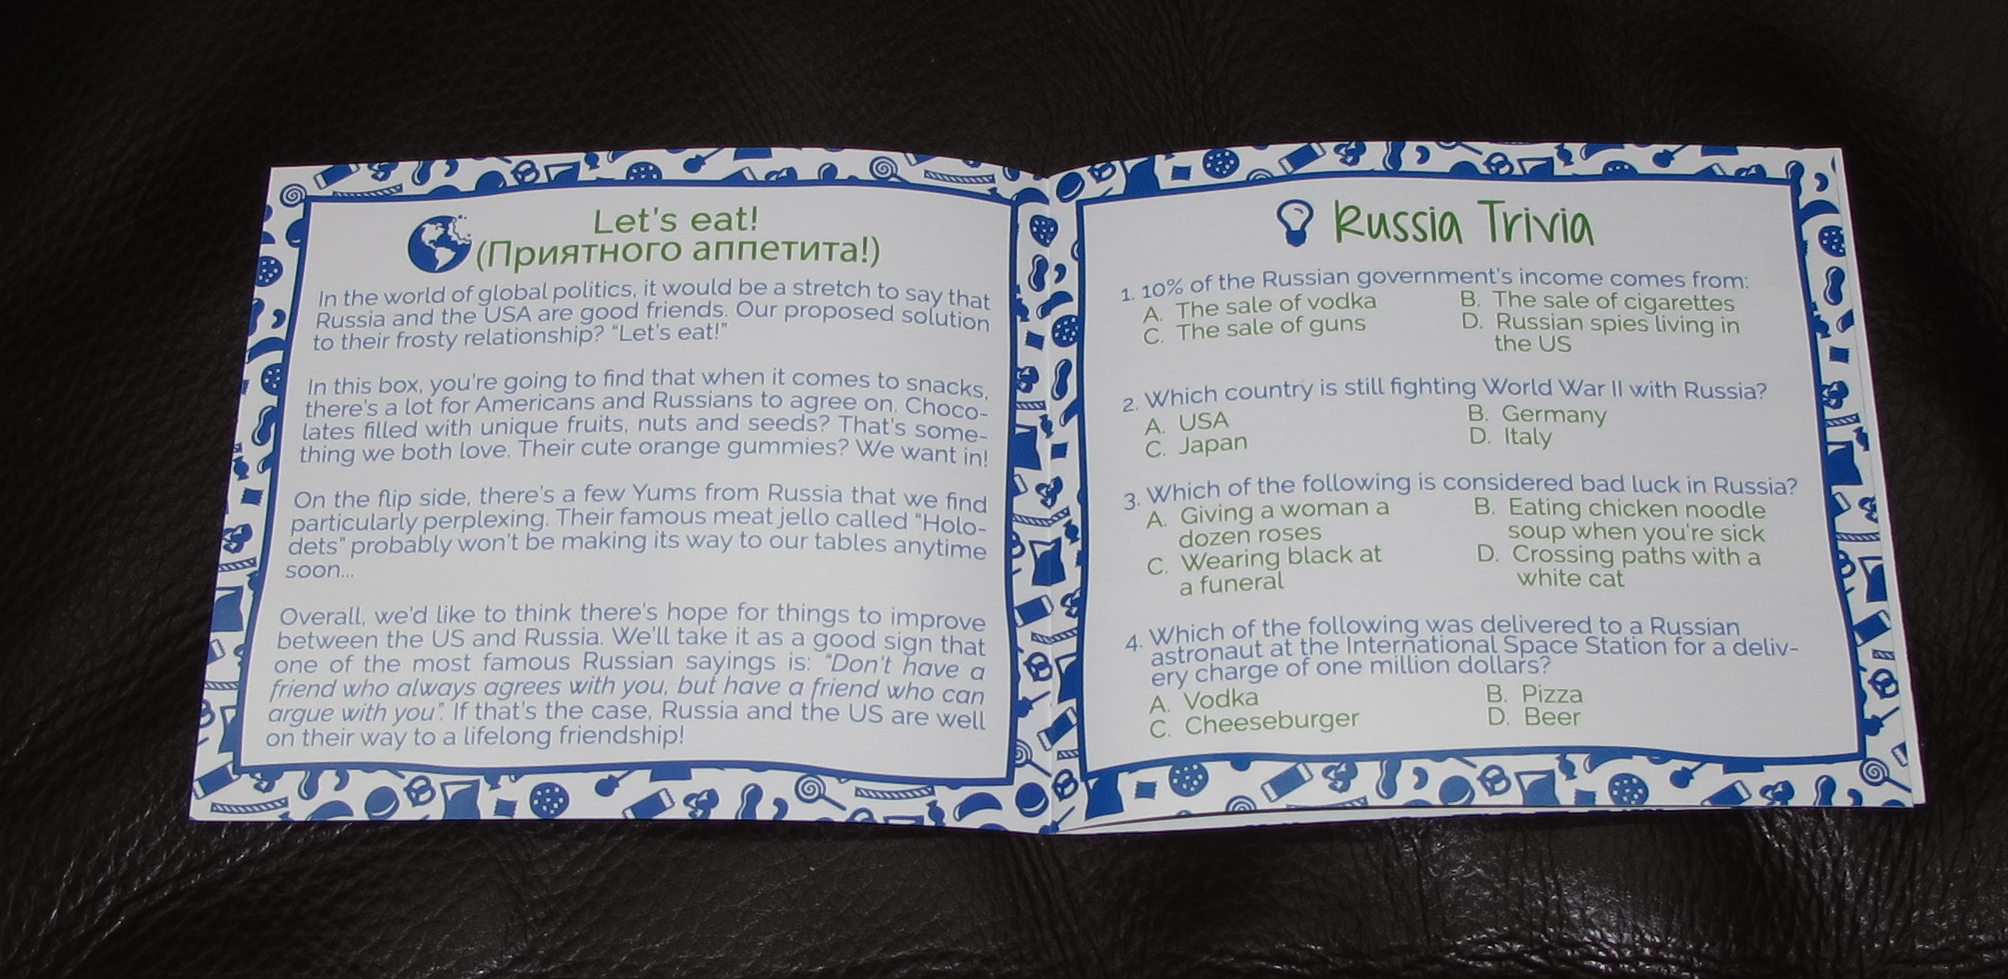 Let's eat!
(Приятного аппетита!)
In the world of global politics, it would be a stretch to say that
Russia and the USA are good friends. Our proposed solution
to their frosty relationship? "Let's eat!"
In this box, you're going to find that when it comes to snacks,
there's a lot for Americans and Russians to agree on. Choco-
lates filled with unique fruits, nuts and seeds? That's some-
thing we both love. Their cute orange gummies? We want in!
On the flip side, there's a few Yums from Russia that we find
particularly perplexing. Their famous meat jello called "Holo-
dets" probably won't be making its way to our tables anytime
soon...
Overall, we'd like to think there's hope for things to improve
between the US and Russia. We'll take it as a good sign that
one of the most famous Russian sayings is: "Don't have a
friend who always agrees with you, but have a friend who can
argue with you". If that's the case, Russia and the US are well
on their way to a lifelong friendship!
Russia Trivia
1. 10% of the Russian government's income comes from:
A. The sale of vodka B. The sale of cigarettes
C. The sale of guns D. Russian spies living in
the US
2. Which country is still fighting World War II with Russia?
A. USA B. Germany
C. Japan D. Italy
3. Which of the following is considered bad luck in Russia?
A. Giving a woman a B. Eating chicken noodle
dozen roses soup when you're sick
C. Wearing black at D. Crossing paths with a
a funeral white cat
4. Which of the following was delivered to a Russian
astronaut at the International Space Station for a deliv-
ery charge of one million dollars?
A. Vodka B. Pizza
C. Cheeseburger D. Beer